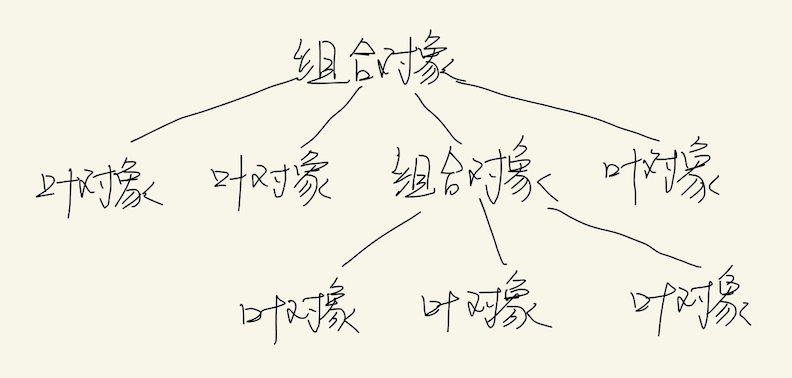 组合对象
叶对象 叶对象 组合对象 叶对象
叶对象 叶对象 叶对象